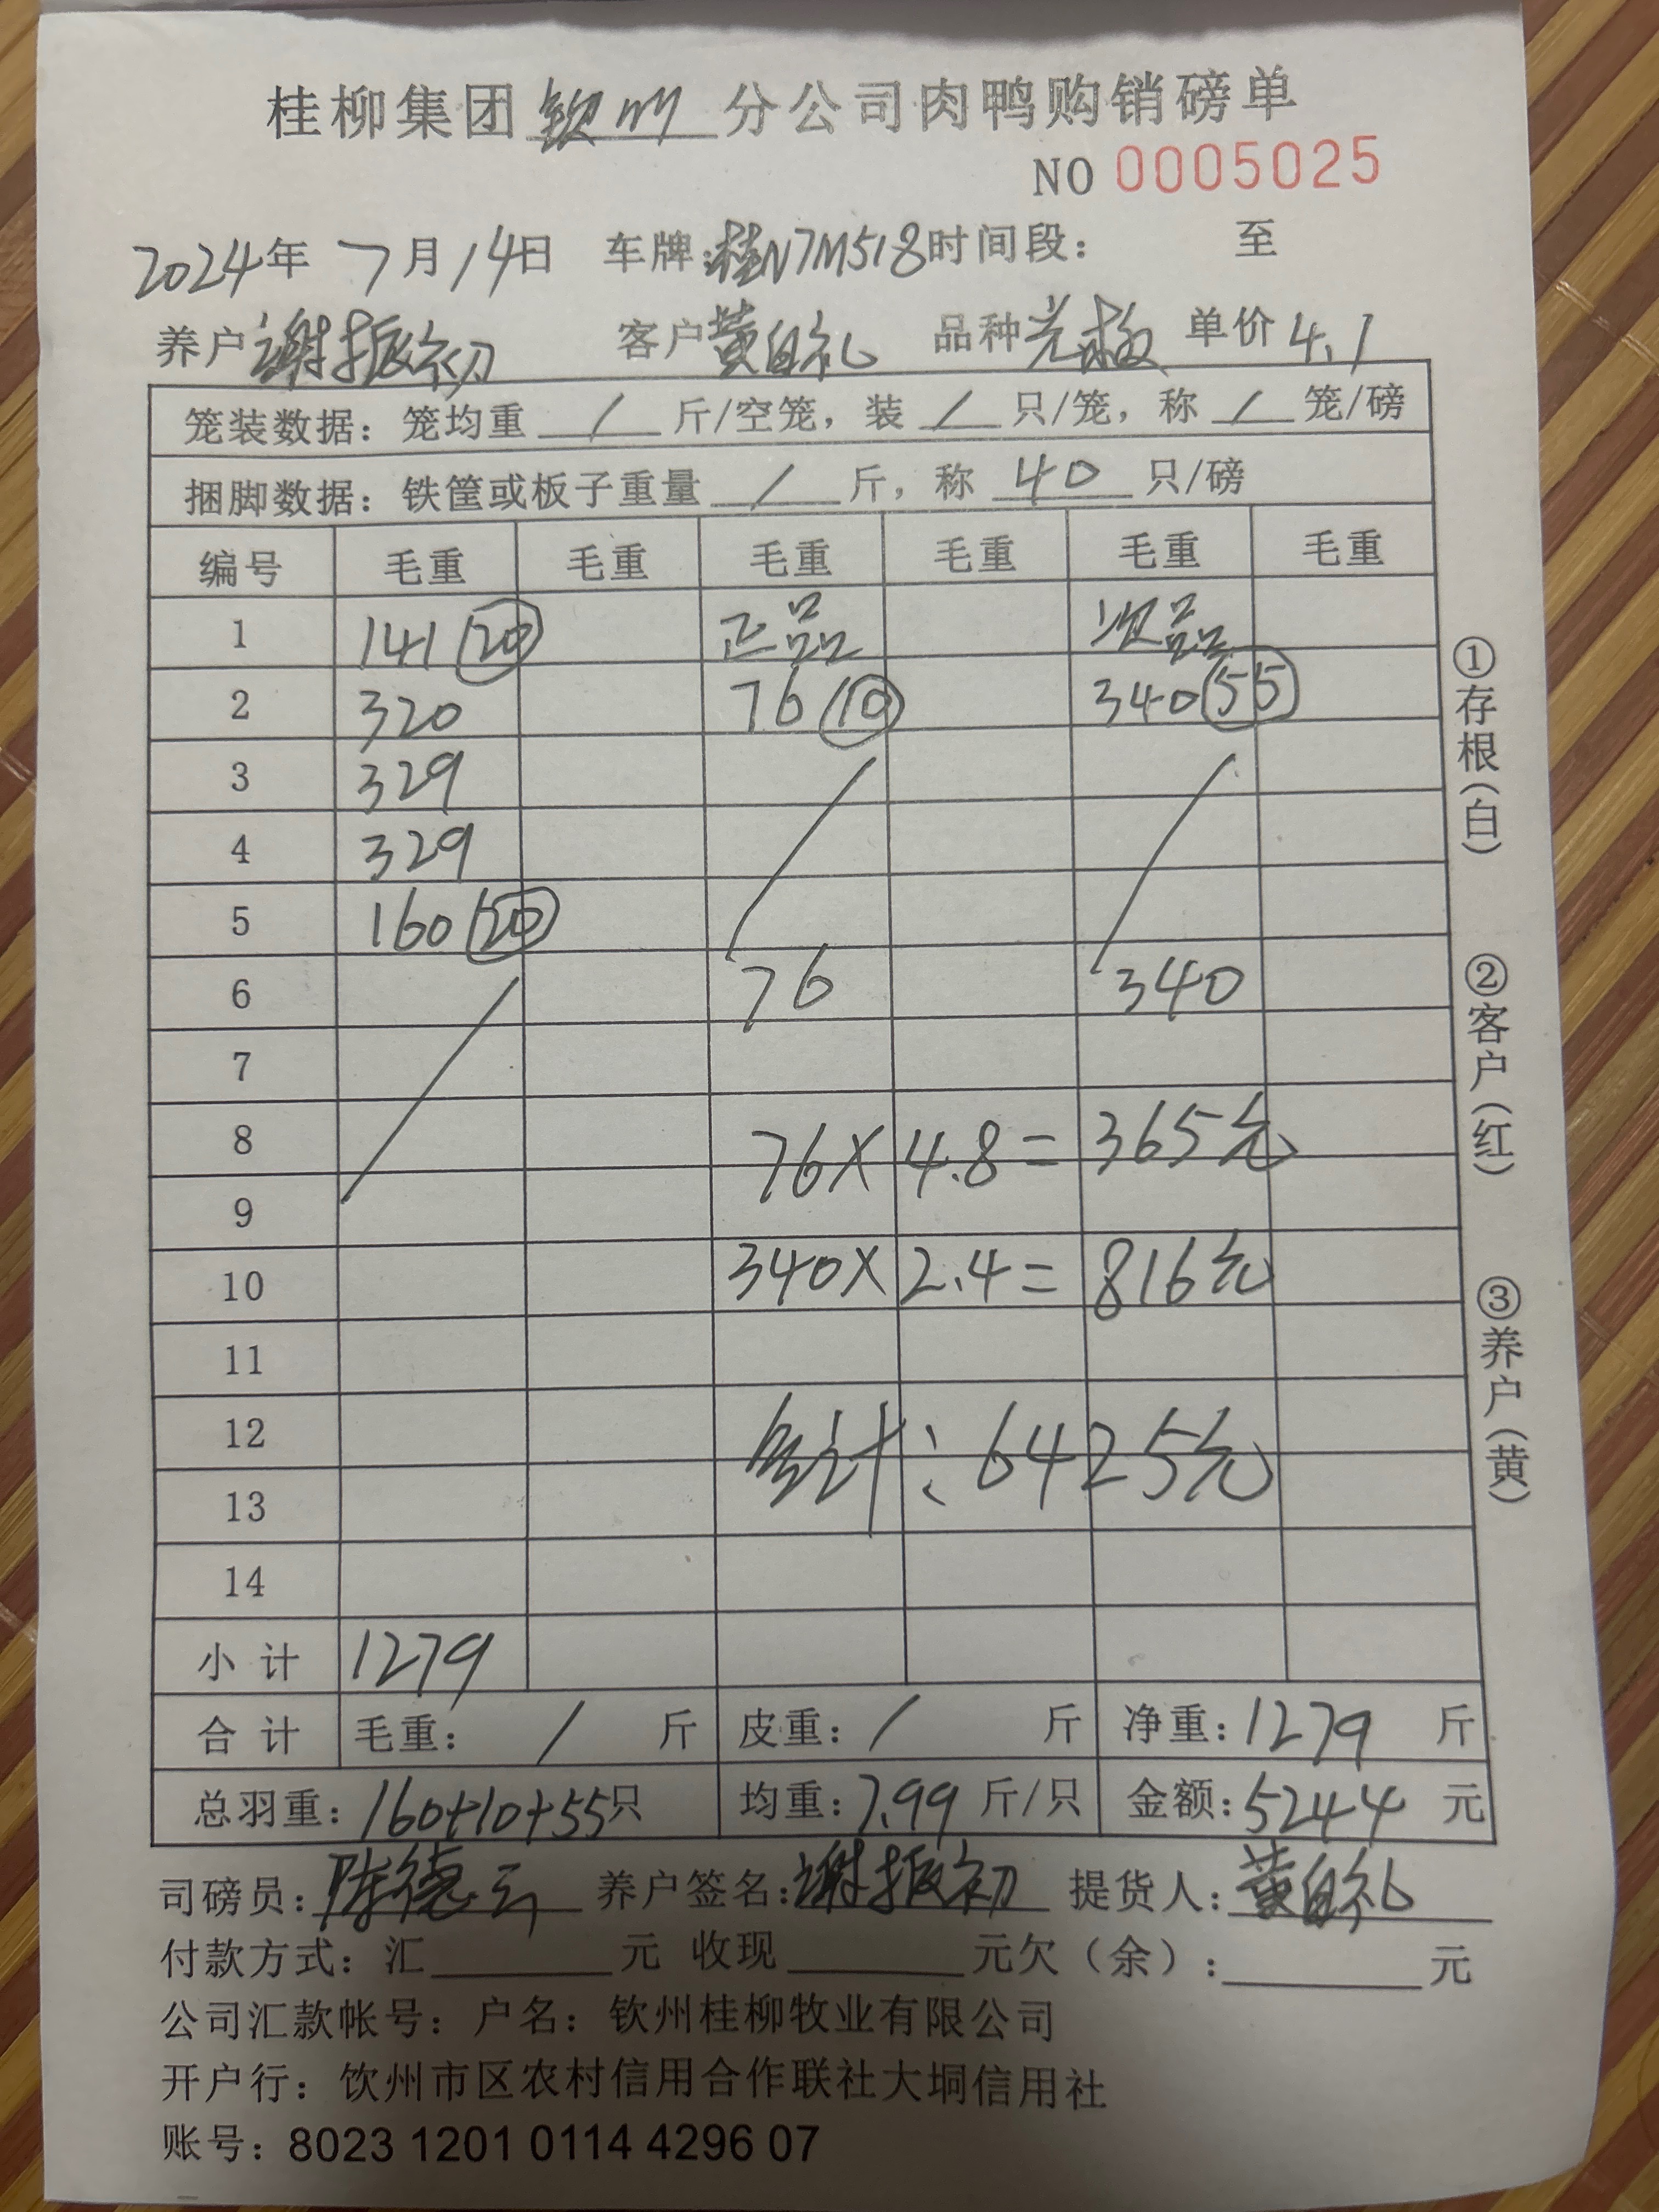 桂柳集团 钦州 分公司肉鸭购销磅单
NO 0005025
2024年 7月14日 车牌:桂N7M518 时间段: 至
养户 谢振初 客户 黄自礼 品种 单价 4.1
笼装数据：笼均重 / 斤/空笼，装 / 只/笼，称 / 笼/磅
捆脚数据：铁筐或板子重量 / 斤，称 40 只/磅
编号 毛重 毛重 毛重 毛重 毛重 毛重
1 141 (20) 正品 次品
2 320 76 (10) 340 (55)
3 329
4 329
5 160 (20)
6 76 340
7
8 76×4.8= 365元
9
10 340×2.4= 816元
11
12 合计: 6425元
13
14
小计 1279
合计 毛重: / 斤 皮重: / 斤 净重: 1279 斤
总羽重: 160+10+55只 均重: 7.99 斤/只 金额: 5244 元
司磅员: 陈德云 养户签名: 谢振初 提货人: 黄自礼
付款方式：汇 元 收现 元欠（余）: 元
公司汇款帐号：户名：钦州桂柳牧业有限公司
开户行：钦州市区农村信用合作联社大垌信用社
账号：8023 1201 0114 4296 07
①存根(白)
②客户(红)
③养户(黄)